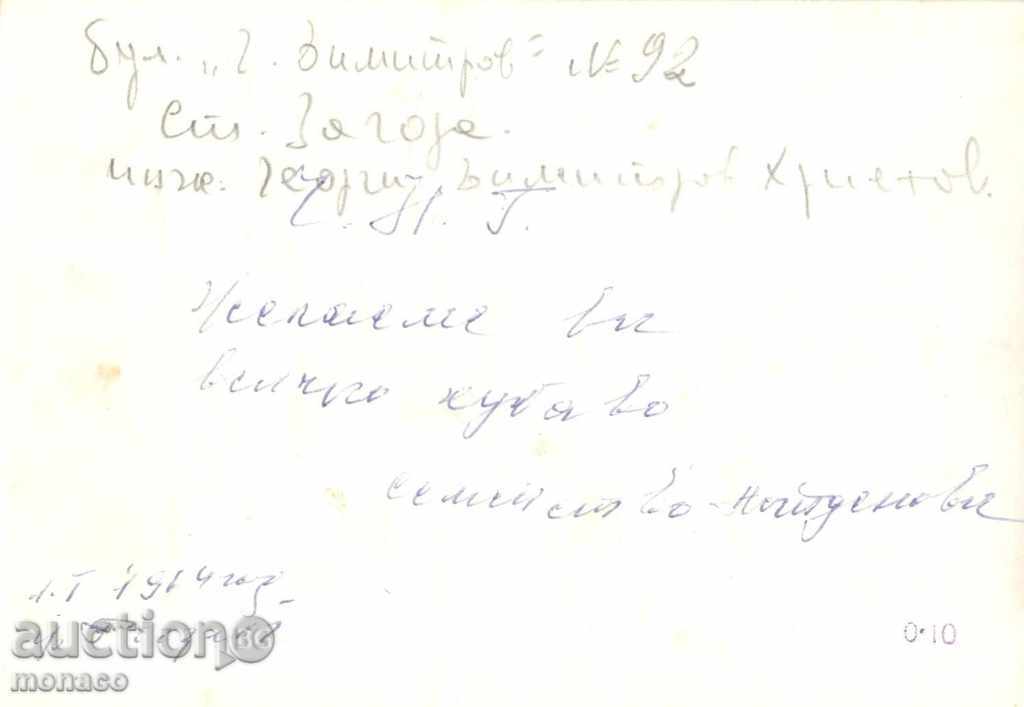 бул. „Г. Димитров“ № 92
Ст. Загора.
инж. Георги Димитров Христов.
Ч. Н. Г.
Желаеме ви
всичко хубаво
семейство - Найденови
1. I 1964 год
auction BG
monaco
0·10